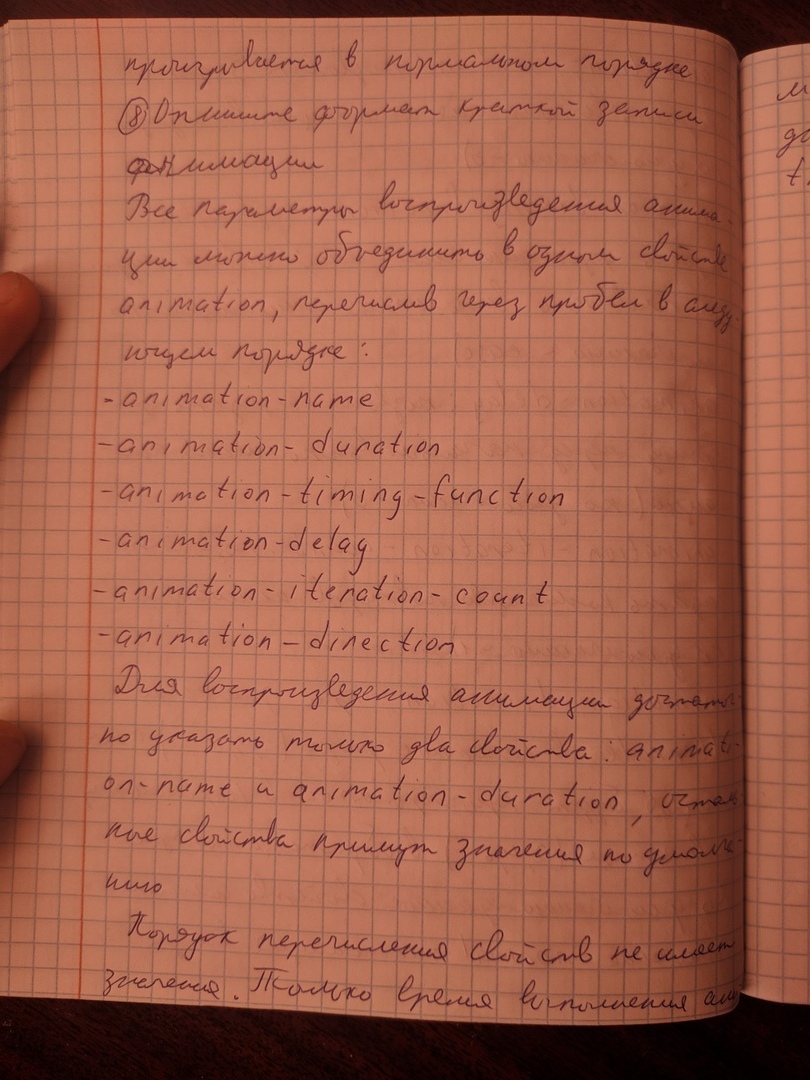 проигрывается в нормальном порядке
⑧ Опишите формат краткой записи
анимации
Все параметры воспроизведения анима-
ции можно объединить в одном свойстве
animation, перечислив через пробел в следу-
ющем порядке:
-animation-name
-animation-duration
-animation-timing-function
-animation-delay
-animation-iteration-count
-animation-direction
Для воспроизведения анимации достаточ-
но указать только два свойства: animati-
on-name и animation-duration, осталь
ные свойства примут значения по умолча-
нию
Порядок перечисления свойств не имеет
значения. Только время выполнения ани